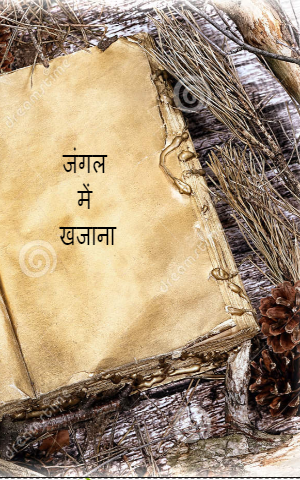 जंगल
में
खजाना